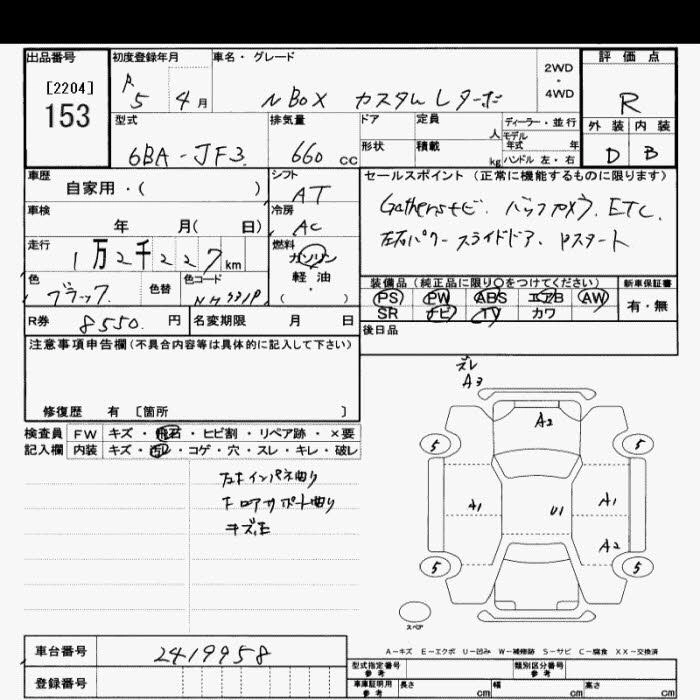 出品番号 初度登録年月 車名・グレード 2WD ・ 4WD 評価点
[2204]
153
R 5 4月 N BOX カスタム L ターボ R
型式 排気量 ドア 定員 人 ディーラー・並行
モデル年式 年
外装 内装
6BA-JF3 660 cc 形状 積載 kg ハンドル 左・右 D B
車歴 自家用・( )
シフト AT
セールスポイント (正常に機能するものに限ります)
Gathersナビ. バックカメラ. ETC.
左右パワースライドドア. Pスタート
車検 年 月( 日)
冷房 AC
走行 1万2千227km
燃料 ガソリン
軽油
・( )
色 ブラック. 色替 色コード
装備品 (純正品に限り○をつけてください) 新車保証書
PS PW ABS エアB AW 有・無
SR ナビ TV カワ
R券 8550. 円 名変期限 月 日
後日品
注意事項申告欄(不具合内容等は具体的に記入して下さい)
修復歴 有 〔箇所 〕
検査員 FW キズ・飛石・ヒビ割・リペア跡・×要
記入欄 内装 キズ・汚レ・コゲ・穴・スレ・キレ・破レ
ズレ
A3
A2
5 5
A1 U1 A1
A2
5 5
スペア
キズ凹
A-キズ E-エクボ U-凹み W-補修跡 S-サビ C-腐食 XX-交換済
車台番号 2419958
登録番号
型式指定番号 参考 類別区分番号 参考
車庫証明用 参考 長さ cm 幅 cm 高さ cm